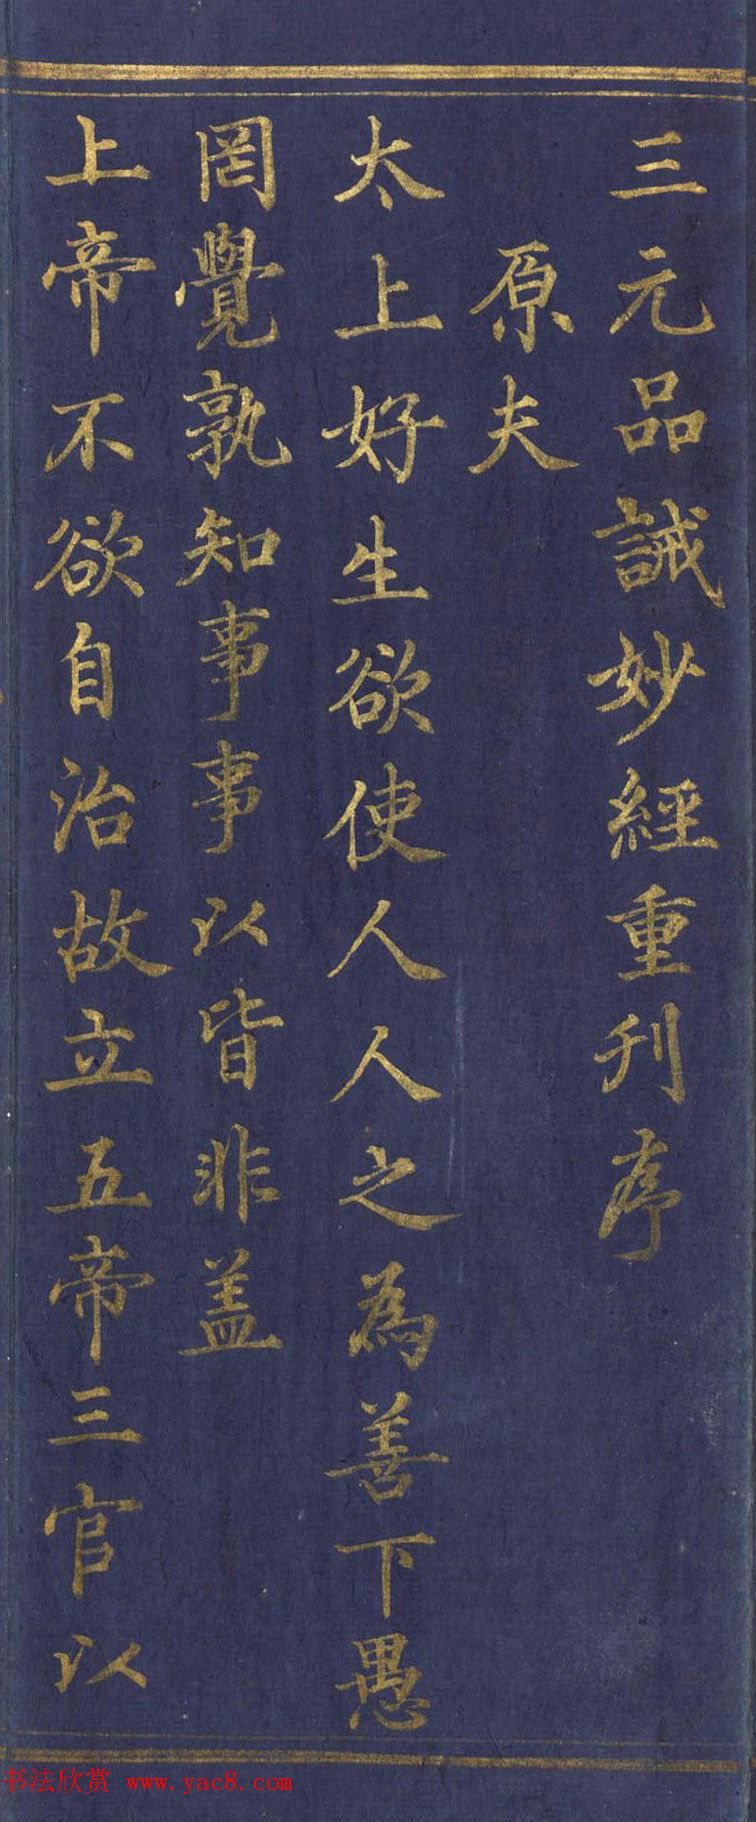 三元品誡妙經重刊序
原夫
太上好生欲使人人之為善下愚
罔覺孰知事事以皆非盖
上帝不欲自治故立五帝三官以
书法欣赏 www.yac8.com